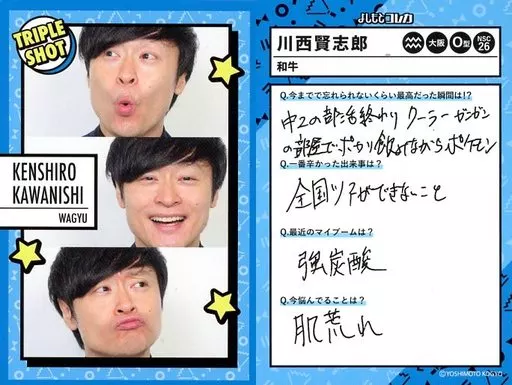 TRIPLE
SHOT
KENSHIRO
KAWANISHI
WAGYU
よしもとコレカ
川西賢志郎
大阪
O型
NSC
26
和牛
Q.今までで忘れられないくらい最高だった瞬間は!?
中2の部活終わり クーラーガンガン
の部屋で、ポカリ飲みながらポケモン
Q.一番辛かった出来事は?
全国ツアーができないこと
Q.最近のマイブームは?
強炭酸
Q.今悩んでることは?
肌荒れ
©YOSHIMOTO KOGYO